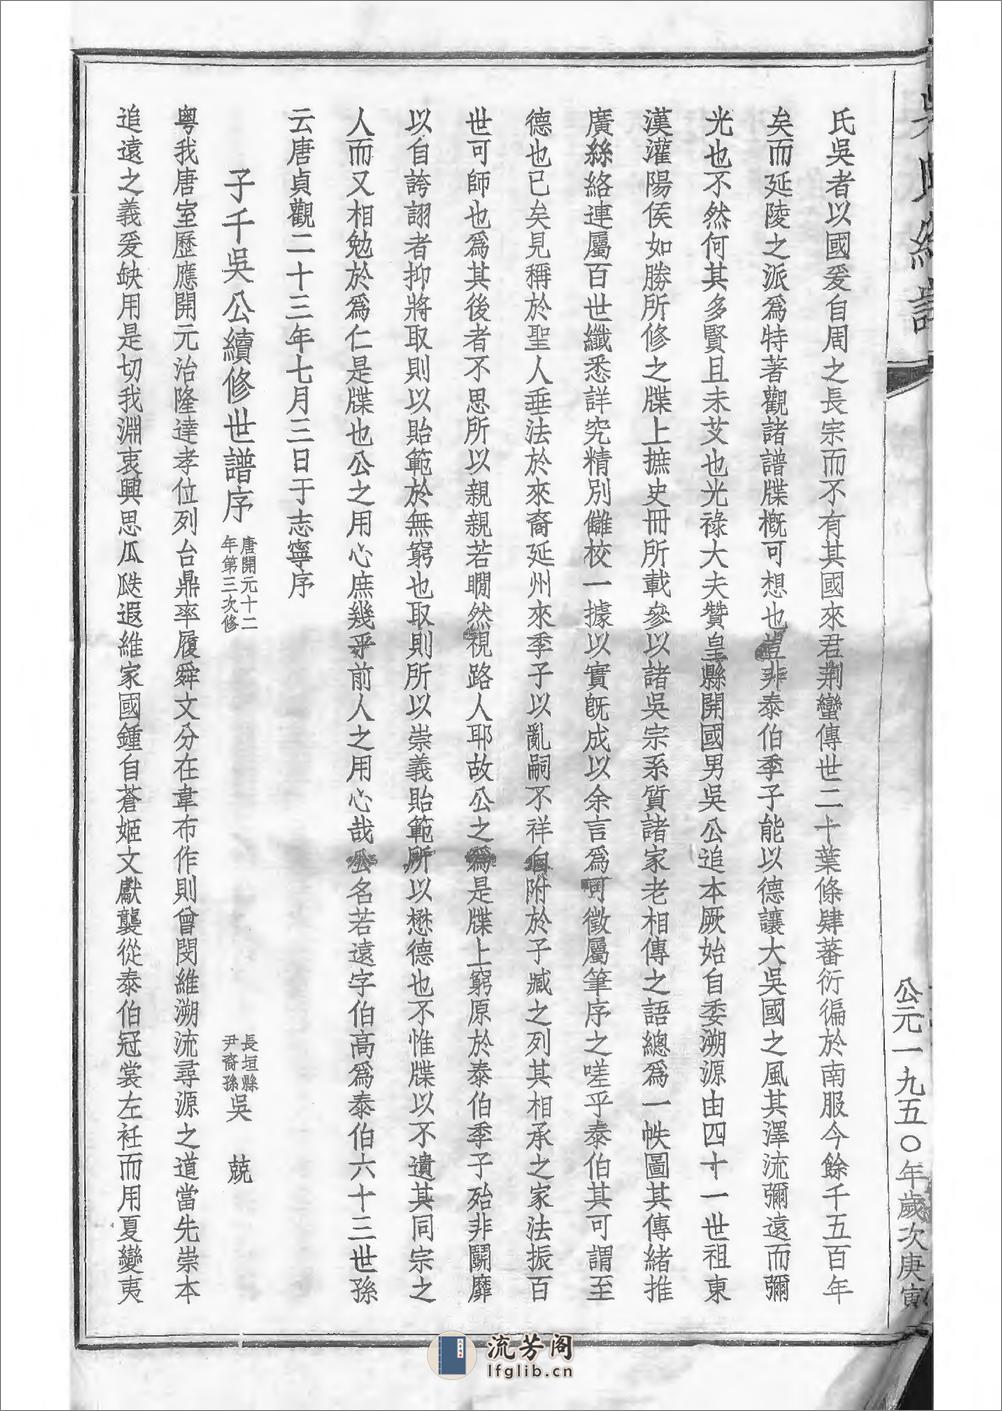 吳氏統譜
公元一九五〇年歲次庚寅
氏吳者以國爰自周之長宗而不有其國來君荆蠻傳世二十葉條肄蕃衍徧於南服今餘千五百年
矣而延陵之派爲特著觀諸譜牒概可想也豈非泰伯季子能以德讓大吳國之風其澤流彌遠而彌
光也不然何其多賢且未艾也光祿大夫贊皇縣開國男吳公追本厥始自委溯源由四十一世祖東
漢灌陽侯如勝所修之牒上摭史冊所載參以諸吳宗系質諸家老相傳之語總爲一帙圖其傳緒推
廣絲絡連屬百世纖悉詳究精別讎校一據以實既成以余言爲可徵屬筆序之嗟乎泰伯其可謂至
德也已矣見稱於聖人垂法於來裔延州來季子以亂嗣不祥自附於子臧之列其相承之家法振百
世可師也爲其後者不思所以親親若瞯然視路人耶故公之爲是牒上窮原於泰伯季子殆非鬭靡
以自誇詡者抑將取則以貽範於無窮也取則所以崇義貽範所以懋德也不惟牒以不遺其同宗之
人而又相勉於爲仁是牒也公之用心庶幾乎前人之用心哉公名若遠字伯高爲泰伯六十三世孫
云唐貞觀二十三年七月三日于志寧序
子千吳公續修世譜序 唐開元十二年第三次修 長垣縣尹裔孫吳 兢
粵我唐室歷應開元治隆達孝位列台鼎率履舜文分在韋布作則曾閔維溯流尋源之道當先崇本
追遠之義爰缺用是切我淵衷興思瓜瓞遐維家國鍾自蒼姬文獻襲從泰伯冠裳左衽而用夏變夷
流芳阁
lfglib.cn